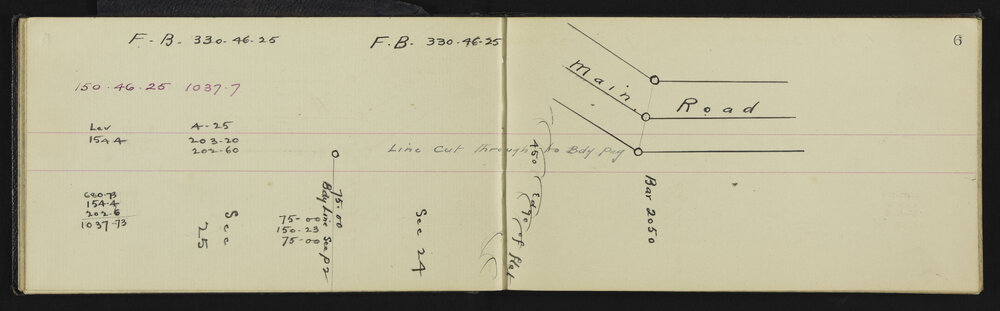 F.B. 330.46.25
150.46.25 1037.7
Lev
154.4
4-25
203-20
202-60
680.73
154.4
202.6
1037.73
Sec
25
75-00
150-23
75-00
75.00
Bdy Line See p 2
F.B. 330.46.25
Line Cut through to Bdy Peg
Sec 24
450
Edge of flat
Main Road
Bar 2050
6